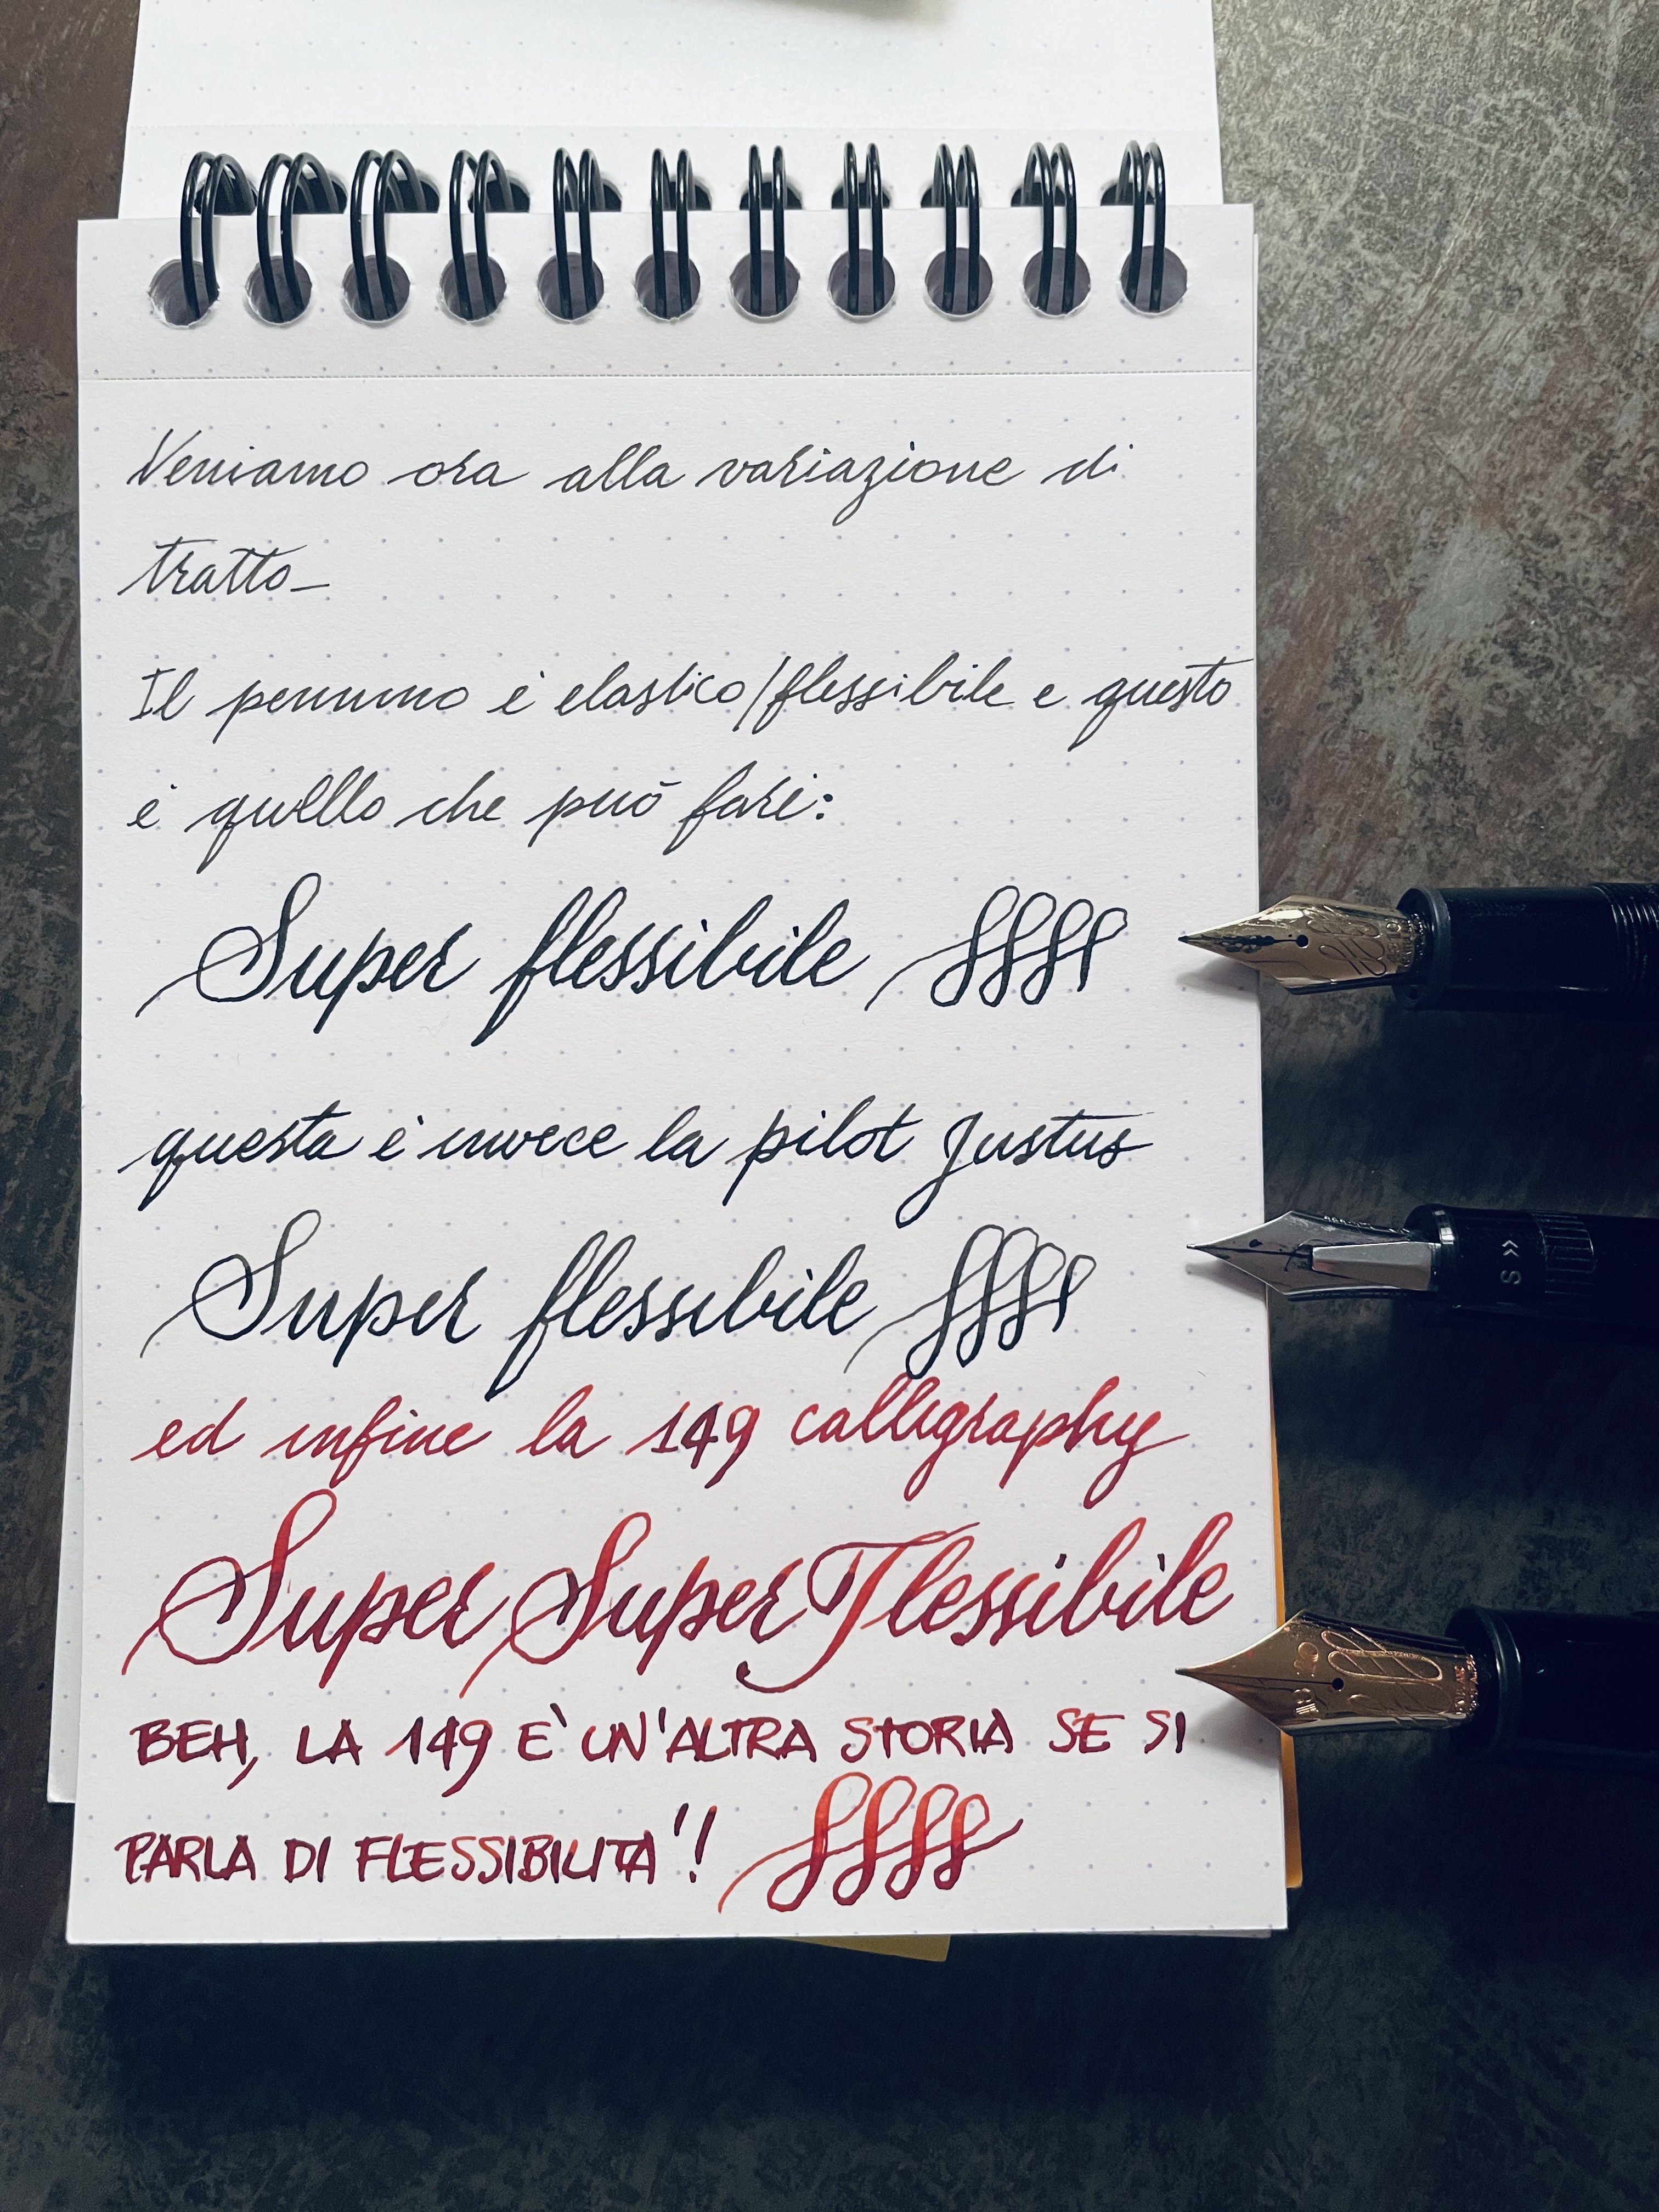 Veniamo ora alla variazione di
tratto_
Il pennino è elastico/flessibile e questo
è quello che può fare:
Super flessibile
questa è invece la pilot Justus
S »
Super flessibile
ed infine la 149 calligraphy
Super Super Flessibile
BEH, LA 149 E' UN'ALTRA STORIA SE SI
PARLA DI FLESSIBILITA'!